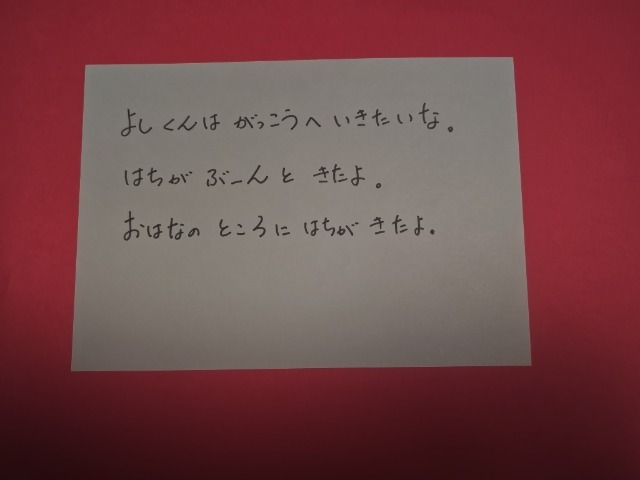 よしくんは がっこうへ いきたいな。
はちが ぶーんと きたよ。
おはなの ところに はちが きたよ。